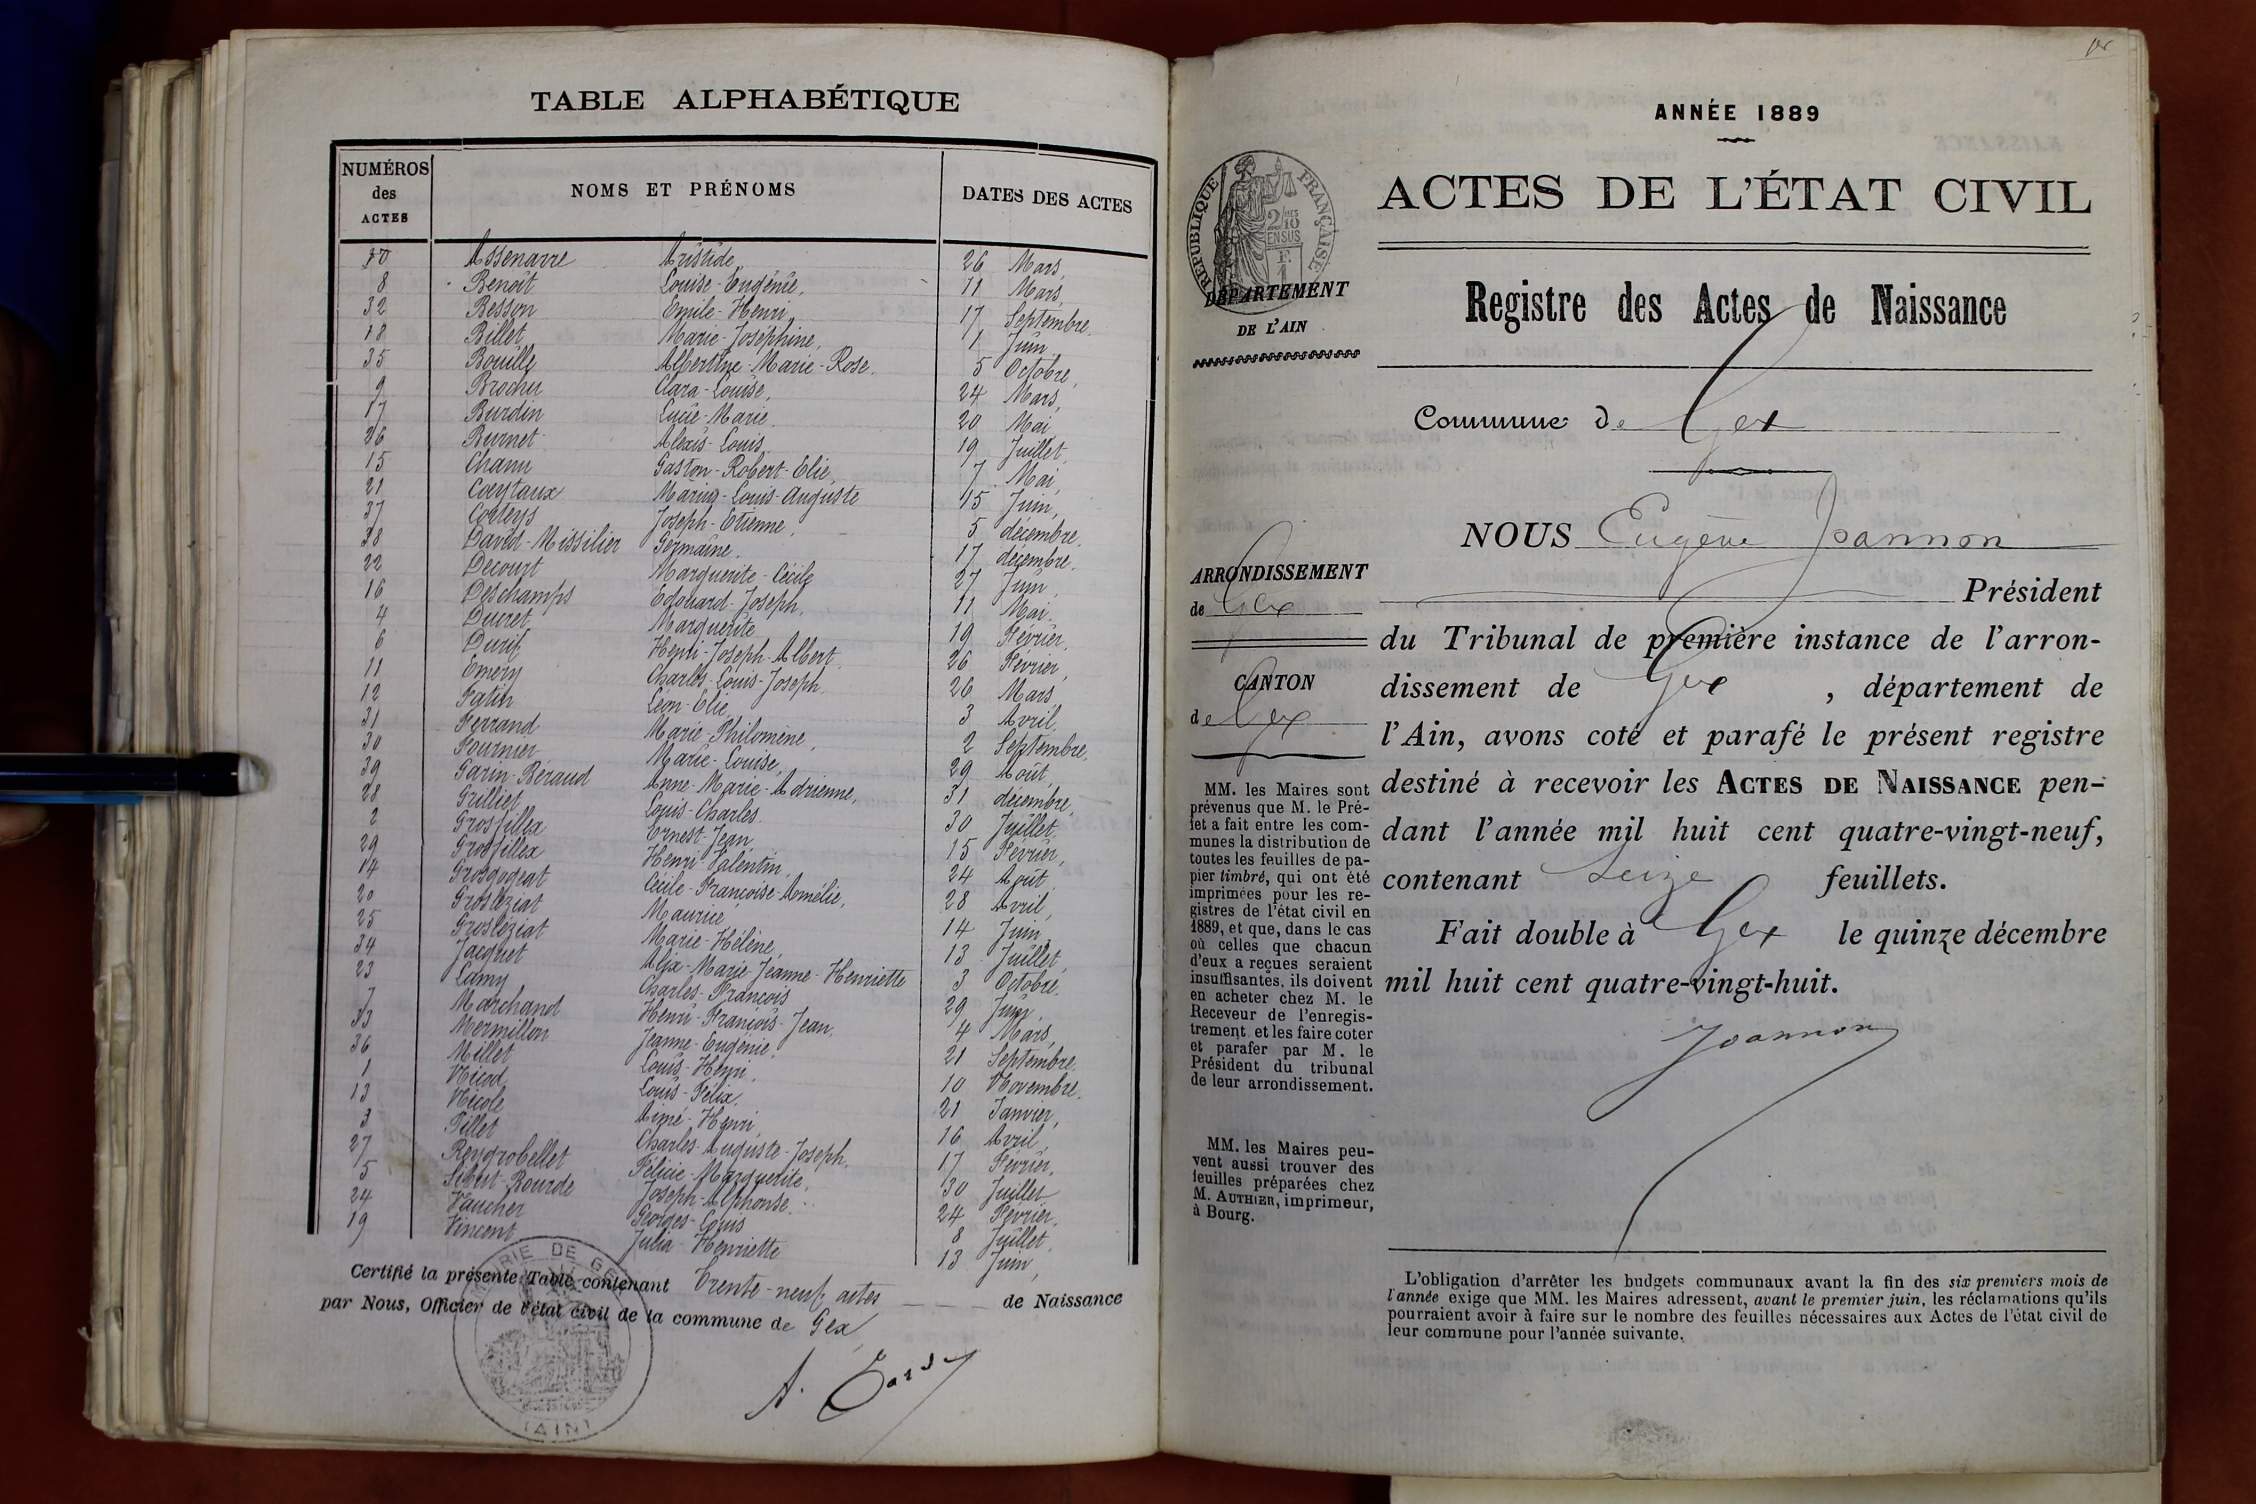 TABLE ALPHABÉTIQUE
NUMÉROS des ACTES NOMS ET PRÉNOMS DATES DES ACTES
Assenarre Aristide, 26 Mars,
8 Benoît Louise-Eugénie, 11 Mars,
32 Besson Emile-Henri, 17 Septembre.
18 Billet Marie-Joséphine, 1 Juin
35 Bouille Albertine-Marie-Rose. 5 Octobre,
9 Brochu Clara-Louise, 24 Mars,
17 Burdin Lucie-Marie. 20 Mai
26 Burnet Alexis-Louis 19 Juillet.
15 Chanu Gaston-Robert-Elie, 7 Mai,
21 Coeytaux Marius-Louis-Auguste 15 Juin,
37 Joseph-Etienne. 5 décembre.
38 David-Missilier Germaine. 17 décembre.
22 Decourt Marguerite-Cécile 27 Juin,
16 Deschamps Edouard-Joseph, 11 Mai.
4 Ducret Marguerite 19 Février.
6 Durif Henri-Joseph-Albert 26 Février,
11 Emery Charles-Louis-Joseph 26 Mars
12 Fatin Léon-Elie 3 Avril
31 Ferrand Marie-Philomène, 2 Septembre,
30 Fournier Marie-Louise, 29 Août,
39 Garin-Béraud Anne-Marie-Adrienne, 31 décembre,
28 Grilliet Louis-Charles. 30 Juillet.
2 Grosfillex Ernest-Jean 15 Février,
29 Grosfillex Henri-Valentin, 24 Août
14 Grosgogeat Cécile-Françoise-Amélie, 28 Avril,
20 Grosleziat Maurice 14 Juin,
25 Grosléziat Marie-Hélène, 13 Juillet,
34 Jacquet Alix-Marie-Jeanne-Henriette 3 Octobre.
23 Lamy Charles-François 29 Juin.
7 Marchand Henri-François-Jean, 4 Mars,
33 Mermillon Jeanne-Eugénie. 21 Septembre.
36 Millet Louis-Henri. 10 Novembre.
1 Nicod Louis-Félix. 21 Janvier,
13 Nicole Aimé-Henri 16 Avril
3 Pillet Charles-Auguste-Joseph. 17 Février.
27 Reygrobellet Félicie-Marguerite, 30 Juillet
5 Sibut-Bourde Joseph-Alphonse. 24 Février.
24 Vaucher Georges-Louis 8 Juillet.
19 Vincent Julia-Henriette 13 Juin,
Certifié la présente Table contenant Trente-neuf actes de Naissance
par Nous, Officier de l'état civil de la commune de Gex
MAIRIE DE GEX
(AIN)
ANNÉE 1889
ACTES DE L'ÉTAT CIVIL
RÉPUBLIQUE FRANÇAISE
DÉPARTEMENT
DE L'AIN
Registre des Actes de Naissance
Commune de Gex
NOUS Eugène Joannon
ARRONDISSEMENT
de Gex
CANTON
de Gex
Président
du Tribunal de première instance de l'arron-
dissement de Gex, département de
l'Ain, avons coté et parafé le présent registre
destiné à recevoir les ACTES DE NAISSANCE pen-
dant l'année mil huit cent quatre-vingt-neuf,
contenant seize feuillets.
Fait double à Gex le quinze décembre
mil huit cent quatre-vingt-huit.
Joannon
MM. les Maires sont
prévenus que M. le Pré-
fet a fait entre les com-
munes la distribution de
toutes les feuilles de pa-
pier timbré, qui ont été
imprimées pour les re-
gistres de l'état civil en
1889, et que, dans le cas
où celles que chacun
d'eux a reçues seraient
insuffisantes, ils doivent
en acheter chez M. le
Receveur de l'enregis-
trement et les faire coter
et parafer par M. le
Président du tribunal
de leur arrondissement.
MM. les Maires peu-
vent aussi trouver des
feuilles préparées chez
M. AUTHIER, imprimeur,
à Bourg.
L'obligation d'arrêter les budgets communaux avant la fin des six premiers mois de
l'année exige que MM. les Maires adressent, avant le premier juin, les réclamations qu'ils
pourraient avoir à faire sur le nombre des feuilles nécessaires aux Actes de l'état civil de
leur commune pour l'année suivante.